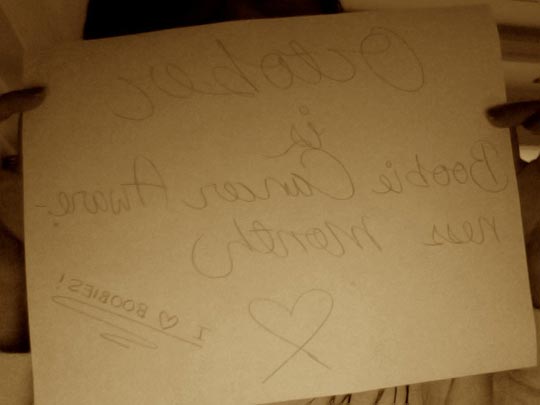 October
is
Boobie Cancer Aware-
ness Month
I ♡ BOOBIES!